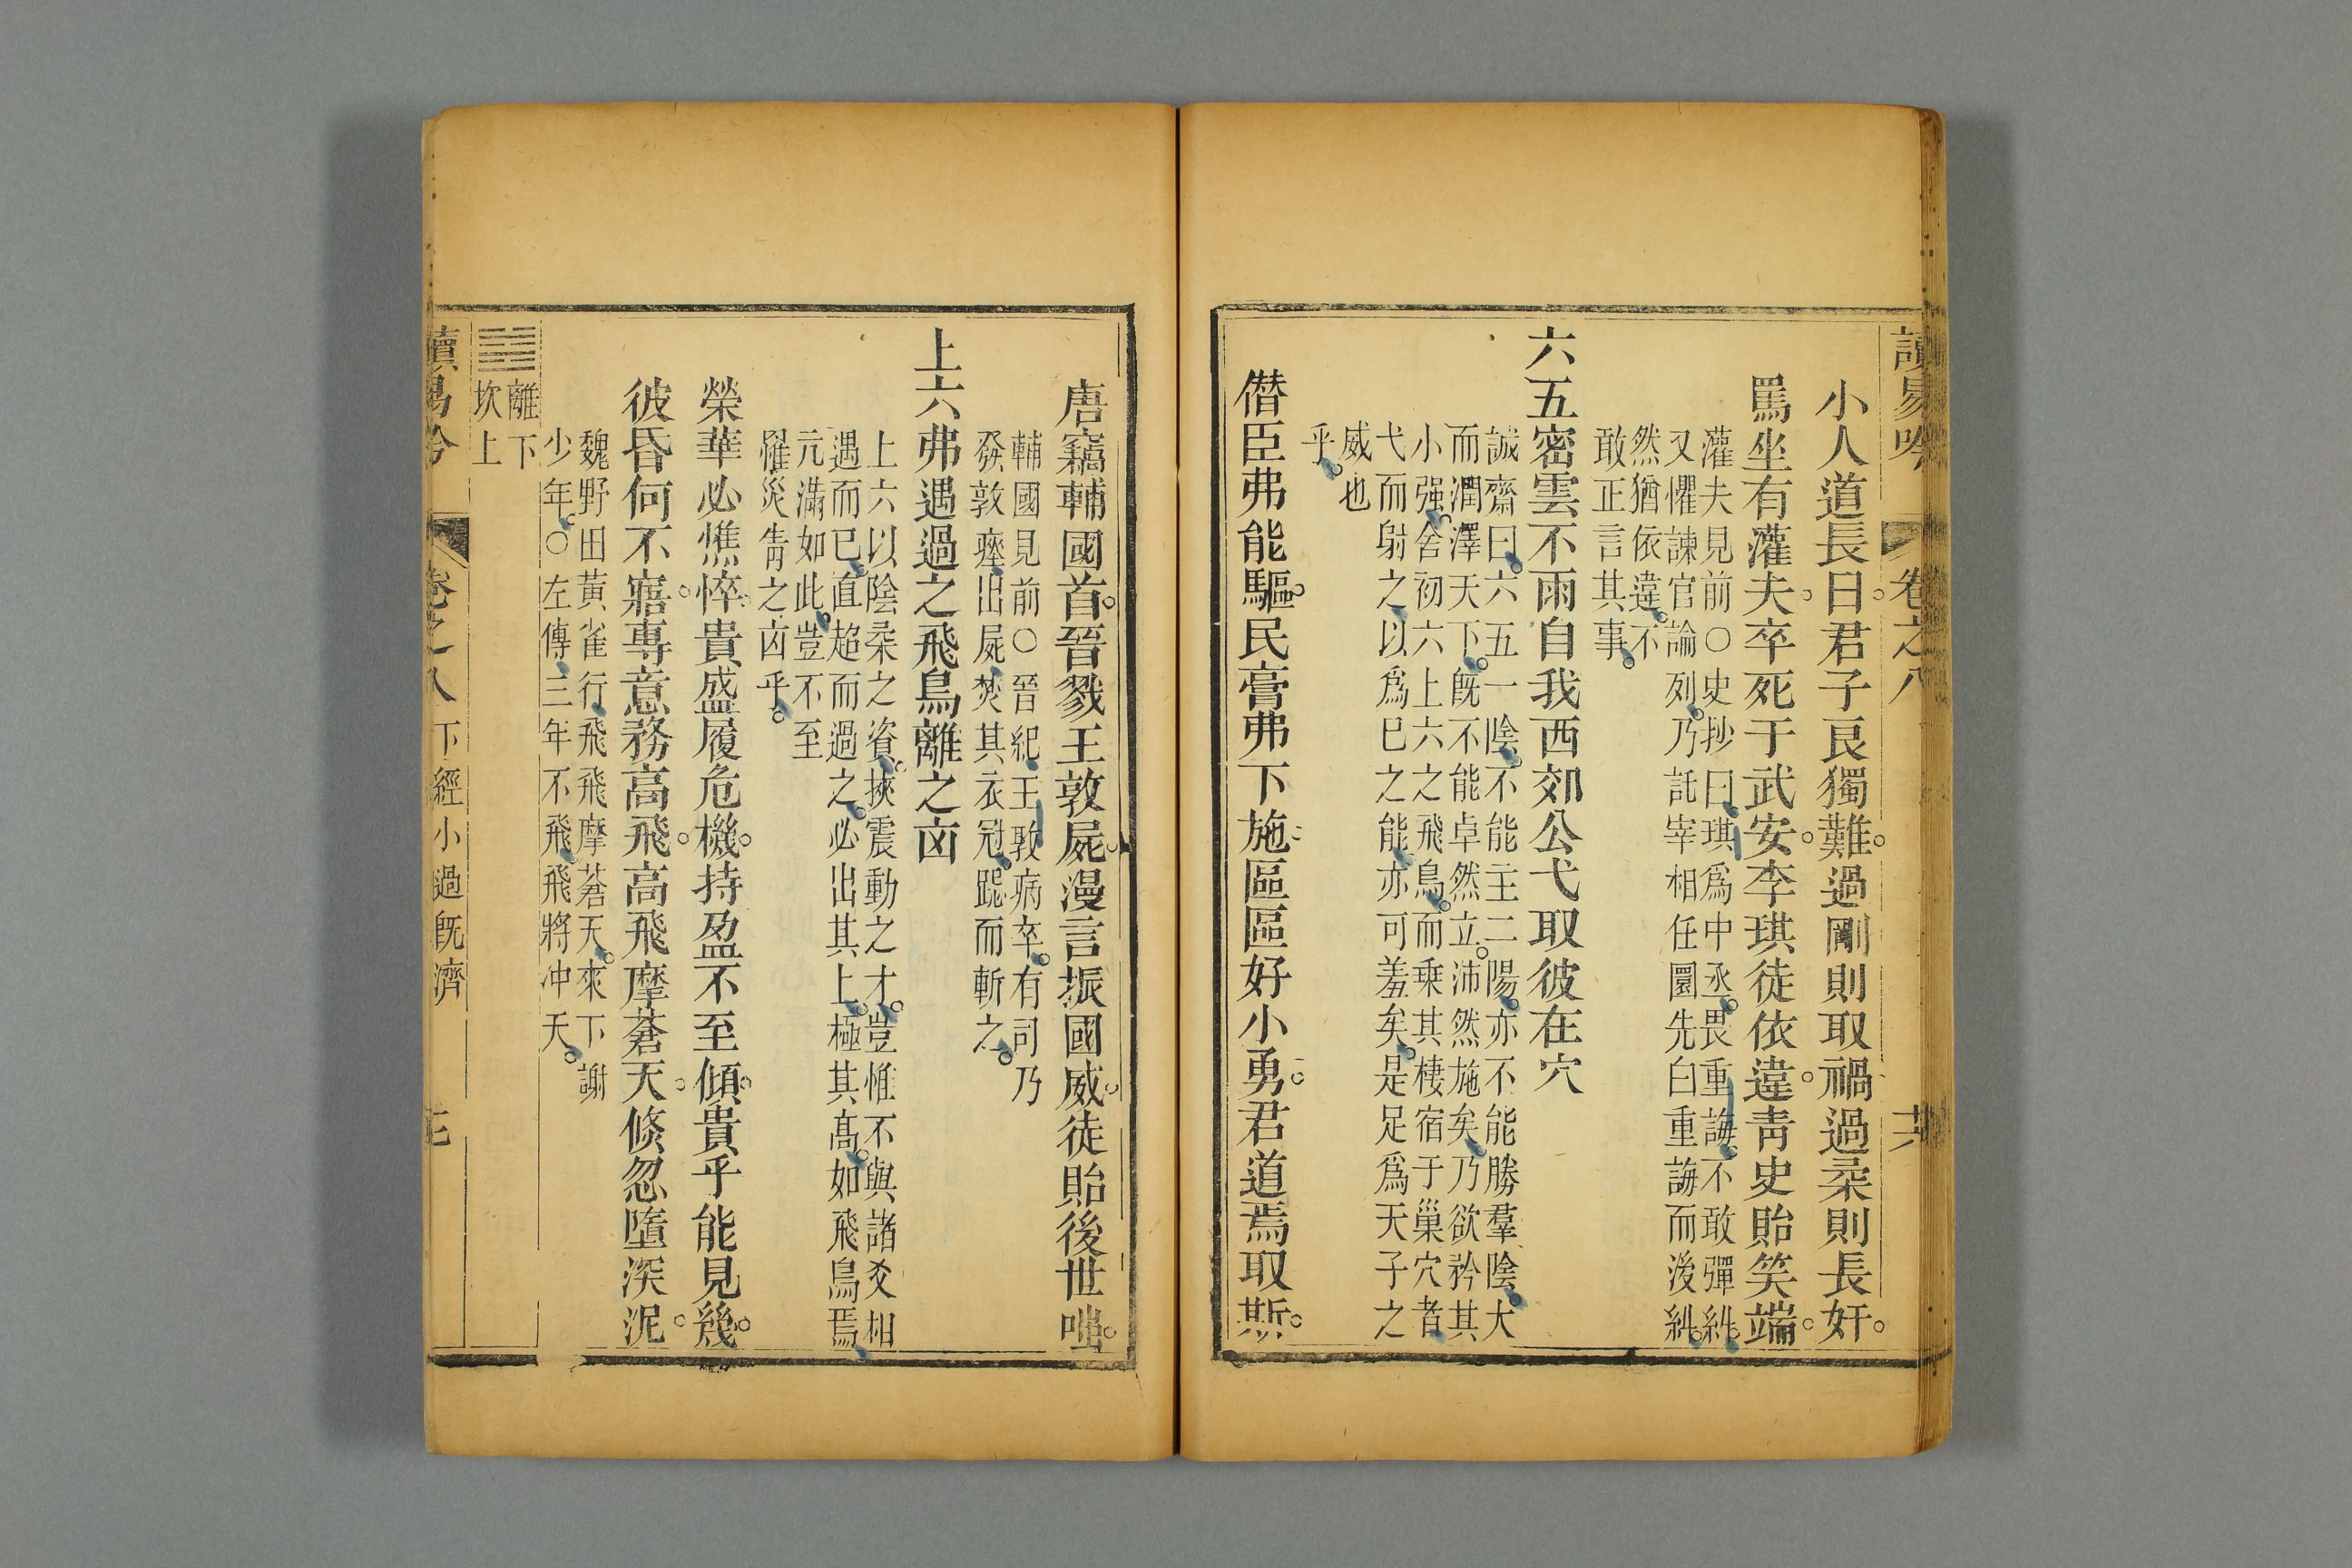 讀易吟 卷之八 十六
小人道長日君子艮獨難過剛則取禍過柔則長奸
罵坐有灌夫卒死于武安李琪徒依違靑史貽笑端
灌夫見前〇史抄曰琪爲中丞畏重誨不敢彈糾
又懼諫官論列乃託宰相任圜先白重誨而後糾
然猶依違不
敢正言其事
六五密雲不雨自我西郊公弋取彼在穴
誠齋曰六五一陰不能主二陽亦不能勝羣陰大
而潤澤天下旣不能卓然立沛然施矣乃欲矜其
小强舍初六上六之飛鳥而乗其棲宿于巢穴者
弋而射之以爲已之能亦可羞矣是足爲天子之
威也
乎
僭臣弗能驅民膏弗下施區區好小勇君道焉取斯
唐竊輔國首晉戮王敦屍漫言振國威徒貽後世嗤
輔國見前〇晉紀王敦病卒有司乃
發敦瘞出屍焚其衣冠跽而斬之
上六弗遇過之飛鳥離之凶
上六以陰柔之資挾震動之才豈惟不與諸爻相
遇而已直超而過之必出其上極其高如飛鳥焉
元滿如此豈不至
罹災眚之凶乎
榮華必憔悴貴盛履危機持盈不至傾貴乎能見幾
彼昏何不寤專意務高飛高飛摩蒼天倐忽墮深泥
魏野田黃雀行飛飛摩蒼天來下謝
少年〇左傳三年不飛飛將冲天
離下
坎上
讀易吟 卷之八 下經小過旣濟